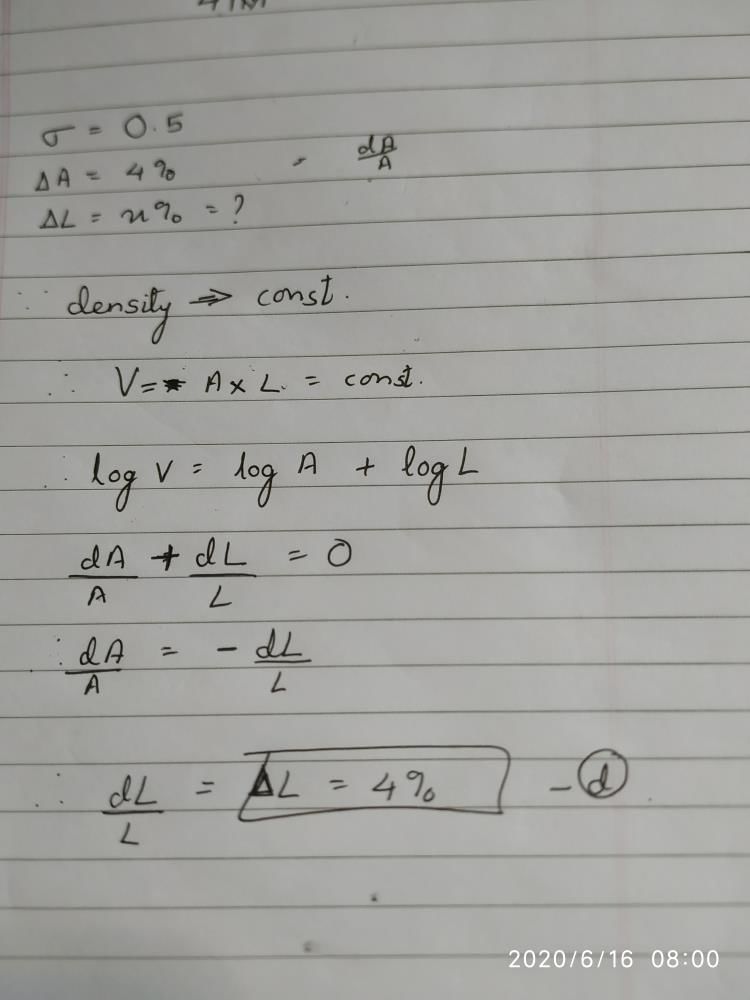 σ = 0.5
ΔA = 4% dA/A
ΔL = x% = ?
∵ density ⇒ const.
∴ V = A × L = const.
∴ log V = log A + log L
dA/A + dL/L = 0
∴ dA/A = - dL/L
∴ dL/L = ΔL = 4% - d
2020/6/16 08:00